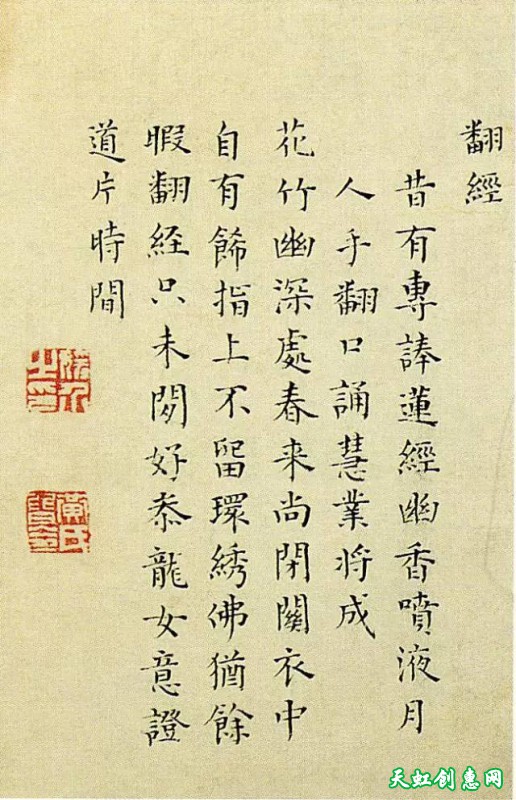 翻經
昔有專蓮經幽香噴液月
人手翻口誦慧業将成
花竹幽深處春来尚閉關衣中
自有餙指上不留環綉佛猶餘
暇翻経只未好叅龍女意證
道片時間
天虹创惠网